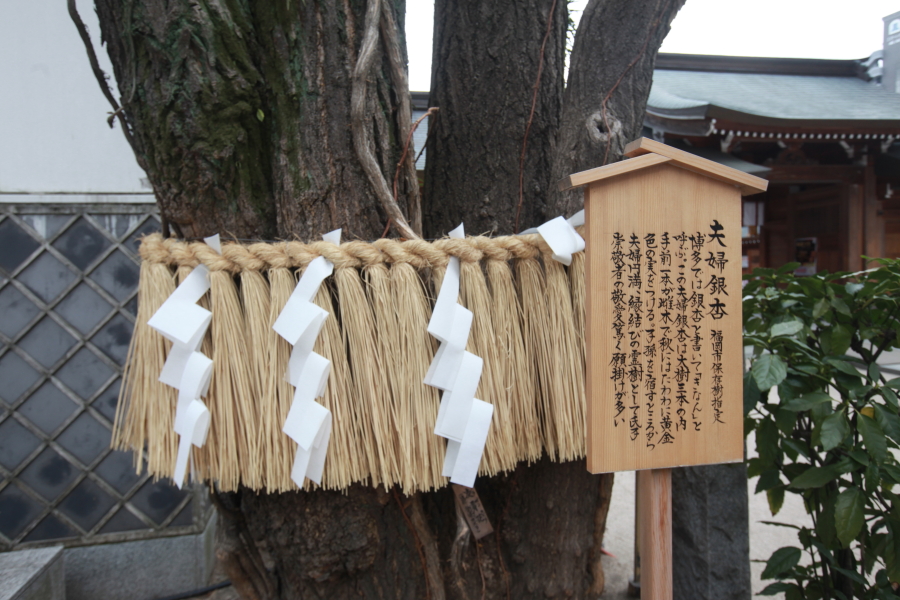 夫婦銀杏 福岡市保存樹指定
博多では「銀杏」と書いて「ギナン」と
呼ぶ。この夫婦銀杏は大樹三本の内
手前一本が雌木で秋にはたわわに黄金
色の実をつける。子孫を宿すところから
夫婦円満、縁結びの霊樹として氏子
崇敬者の敬愛篤く願掛けが多い